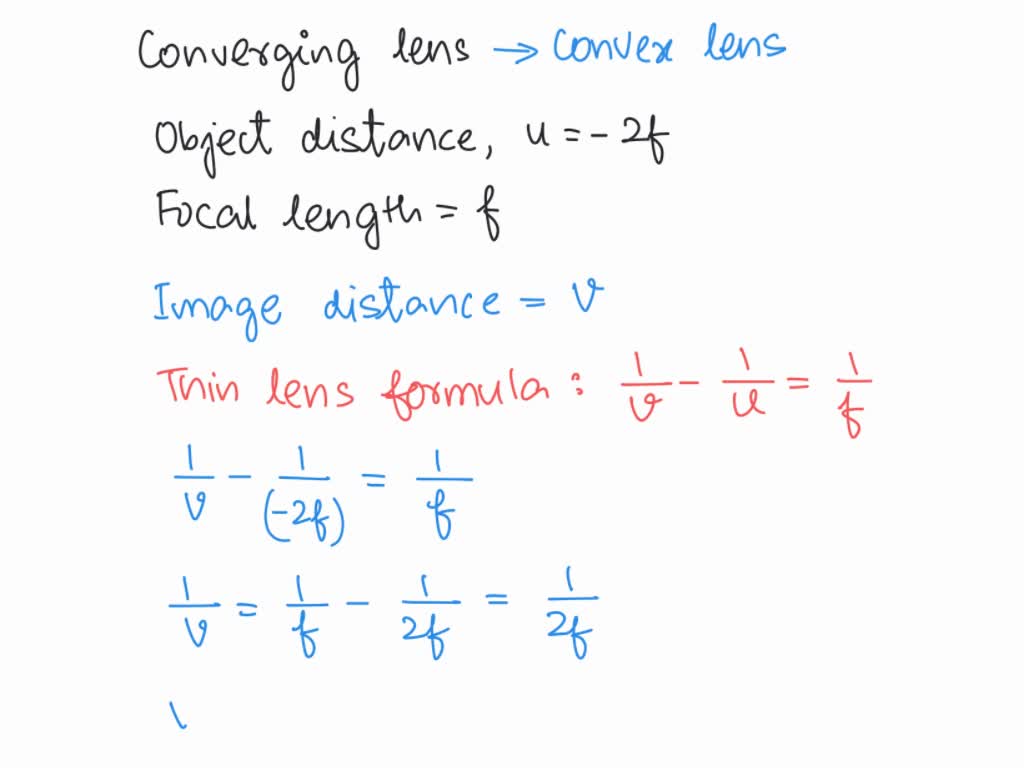 Converging lens → Convex lens
Object distance, u = - 2f
Focal length = f
Image distance = v
Thin lens formula : 1/v - 1/u = 1/f
1/v - 1/(-2f) = 1/f
1/v = 1/f - 1/2f = 1/2f